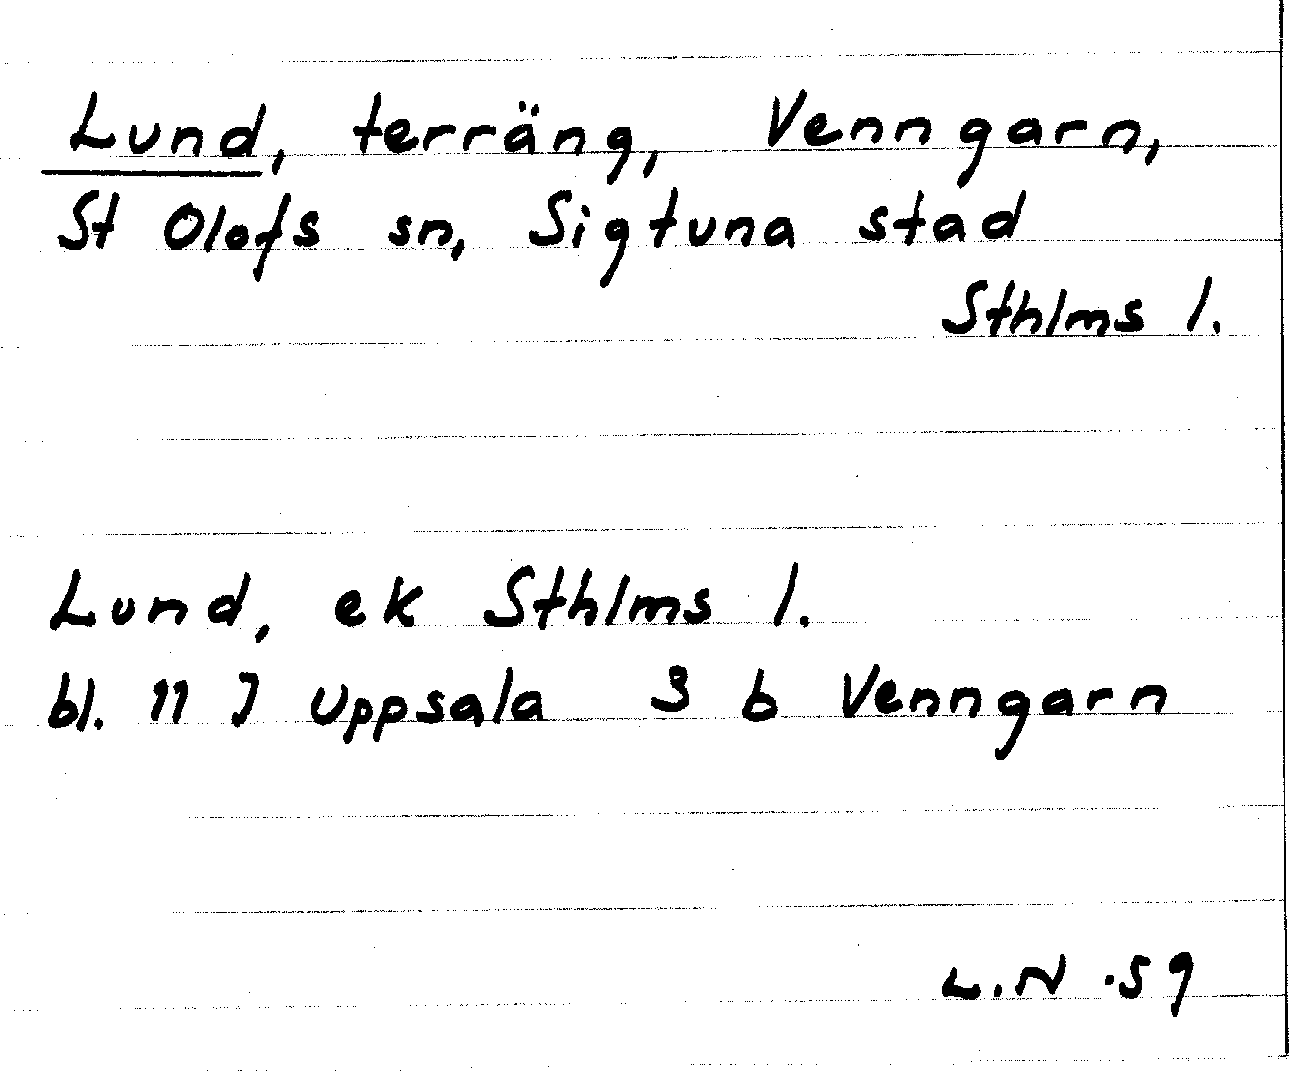 Lund, terräng, Venngarn,
St Olofs sn, Sigtuna stad
Sthlms l.
Lund, ek Sthlms l.
bl. 11 J Uppsala 3 b Venngarn
L.N .59